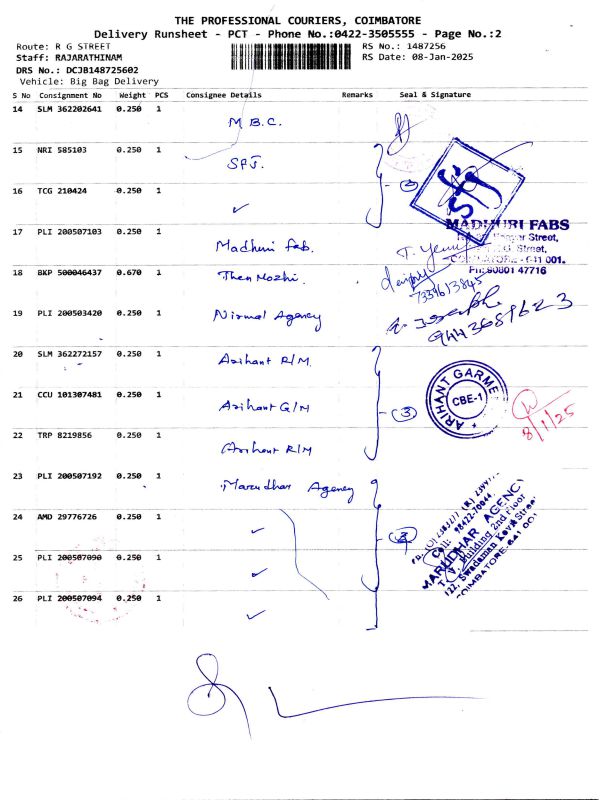 THE PROFESSIONAL COURIERS, COIMBATORE
Delivery Runsheet - PCT - Phone No.:0422-3505555 - Page No.:2
Route: R G STREET RS No.: 1487256
Staff: RAJARATHINAM RS Date: 08-Jan-2025
DRS No.: DCJB148725602
Vehicle: Big Bag Delivery
S No Consignment No Weight PCS Consignee Details Remarks Seal & Signature
14 SLM 362202641 0.250 1 M B.C.
15 NRI 585103 0.250 1 SFJ.
16 TCG 210424 0.250 1 ✓
17 PLI 200507103 0.250 1 Madhuri Fab.
MADHURI FABS
Street,
COIMBATORE - 641 001.
Ph: 90801 47716
18 BKP 500046437 0.670 1 Then Mozhi.
7339613845
19 PLI 200503420 0.250 1 Nirmal Agency
9443689623
20 SLM 362272157 0.250 1 Arihant R/M.
21 CCU 101307481 0.250 1 Arihant G/M
3
ARIHANT GARME
CBE-1
8/1/25
22 TRP 8219856 0.250 1 Arihant R/M
23 PLI 200507192 0.250 1 Marudhar Agency
24 AMD 29776726 0.250 1 ✓
Cell: 98422-70044
MARUDHAR AGENCY
T.V. Building 2nd Floor
122, Swadaman Kovil Street
COIMBATORE-641 001
25 PLI 200507090 0.250 1 ✓
26 PLI 200507094 0.250 1 ✓